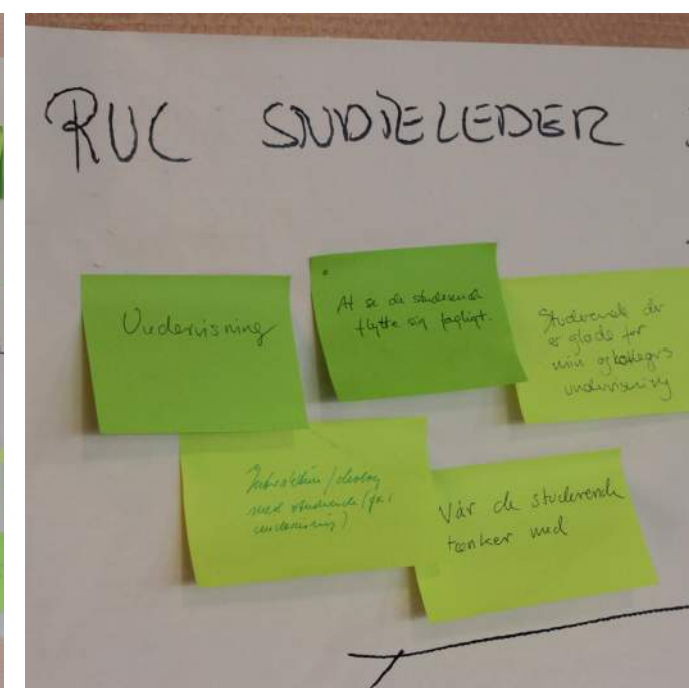 RUC STUDIELEDER
Undervisning
At se de studerende
flytte sig fagligt.
Studerende der
er glade for
min og kollegers
undervisning
Interaktion/dialog
med studerende (fx i
undervisning)
Når de studerende
tænker med